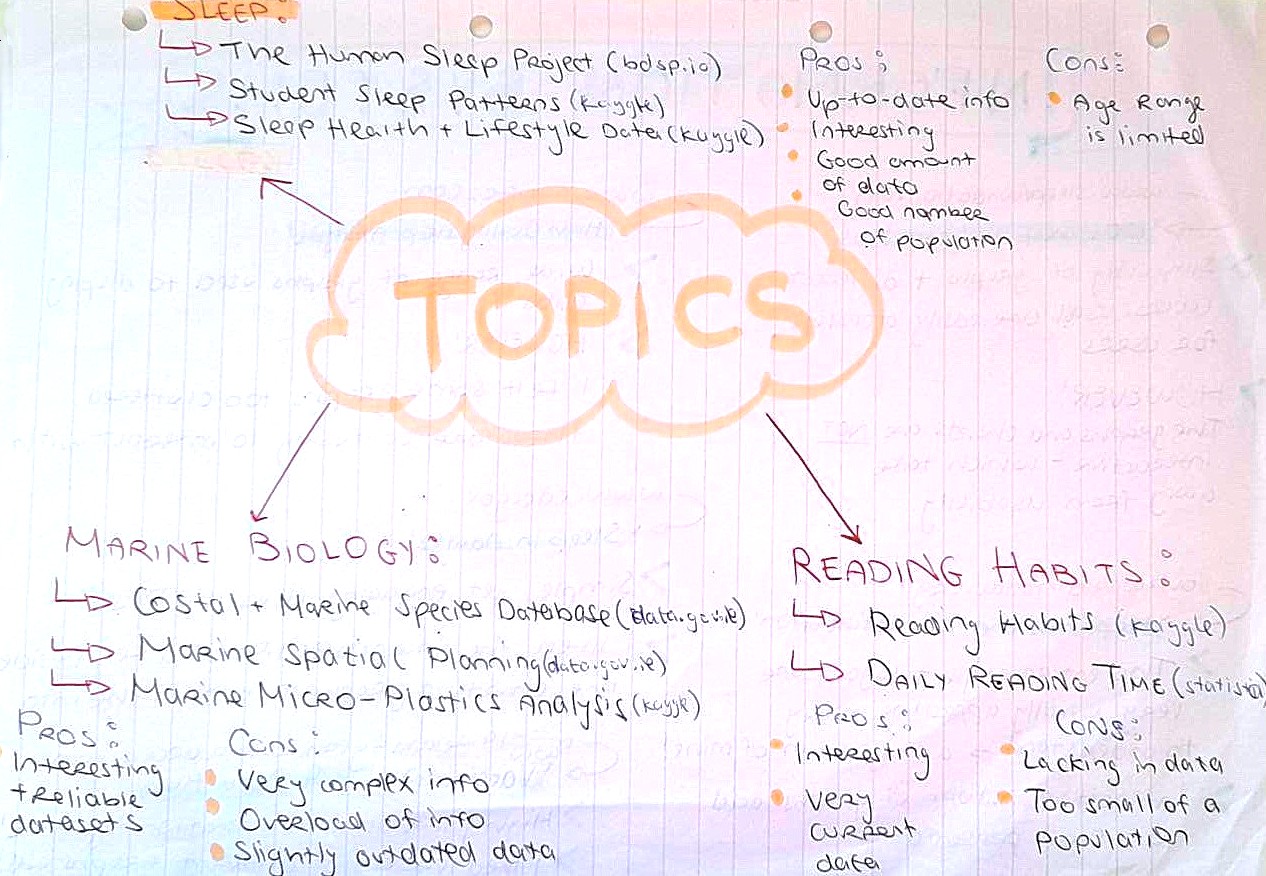 SLEEP:
The Human Sleep Project (bdsp.io)
Student Sleep Patterns (Kaggle)
Sleep Health + Lifestyle Data (Kaggle)
Pros:
Up-to-date info
Interesting
Good amount
of data
Good number
of population
Cons:
Age Range
is limited
TOPICS
MARINE BIOLOGY:
Costal + Marine Species Datebase (data.gov.ie)
Marine Spatial Planning (data.gov.ie)
Marine Micro-Plastics Analysis (Kaggle)
Pros:
Interesting
+ reliable
datasets
Cons:
Very complex info
Overload of info
Slightly outdated data
READING HABITS:
Reading Habits (Kaggle)
DAILY READING TIME (statista)
Pros:
Interesting
Very
current
data
CONS:
Lacking in data
Too small of a
population